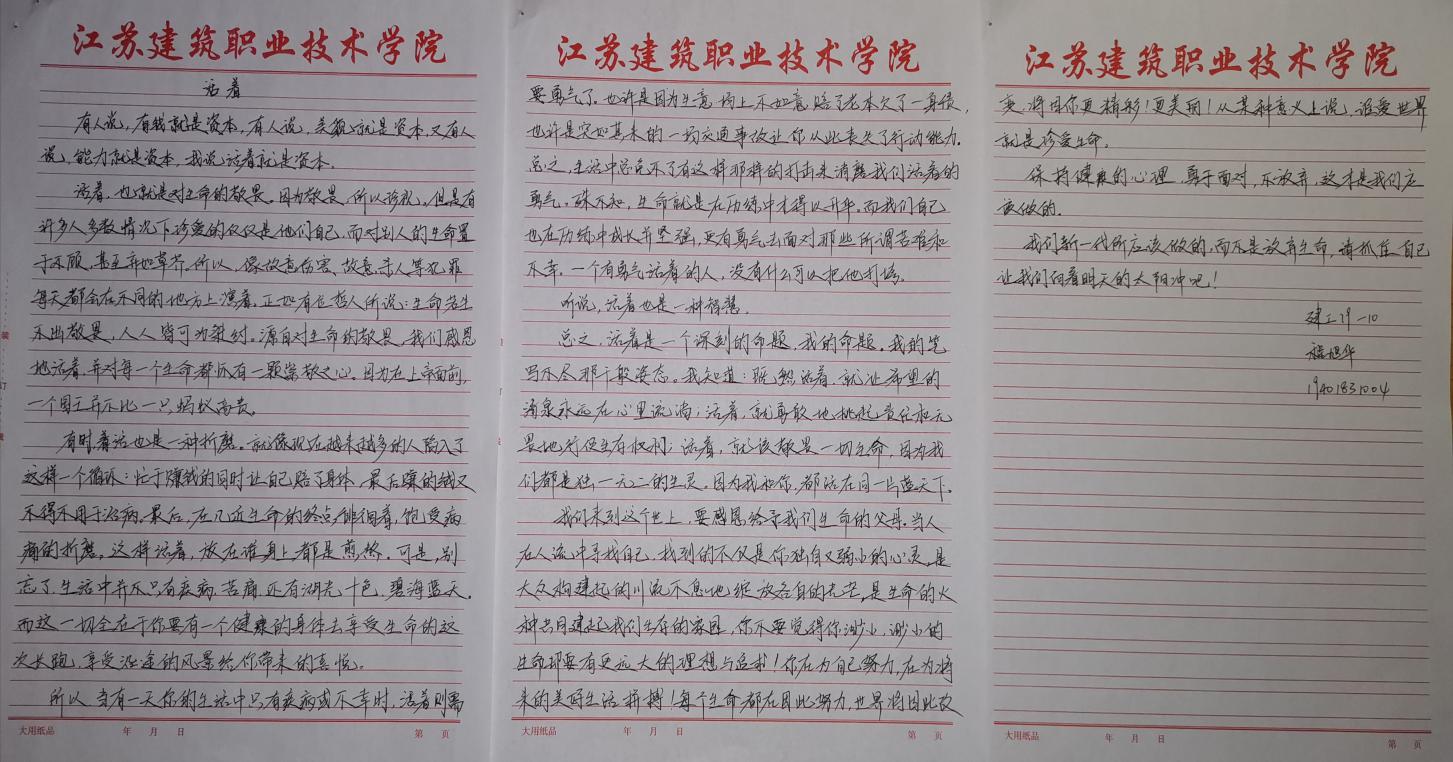 江苏建筑职业技术学院
活着
有人说，有钱就是资本，有人说，美貌就是资本，又有人
说，能力就是资本，我说活着就是资本。
活着，也就是对生命的敬畏。因为敬畏，所以珍视。但是有
许多人多数情况下珍爱的仅仅是他们自己，而对别人的生命置
于不顾，甚至弃如草芥。所以，像故意伤害，故意杀人等犯罪
每天都会在不同的地方上演着。正如有位哲人所说：生命若生
不出敬畏，人人皆可为桀纣。源自对生命的敬畏，我们感恩
地活着，并对每一个生命都抓有一颗崇敬之心。因为在上帝面前，
一个国王并不比一只蚂蚁高贵。
有时着活也是一种折磨。就像现在越来越多的人陷入了
这样一个循环：忙于赚钱的同时让自己赔了身体，最后赚的钱又
不得不用于治病。最后，在几近生命的终点，徘徊着，饱受病
痛的折磨。这样活着，放在谁身上都是煎熬。可是，别
忘了，生活中并不只有疾病，苦痛，还有湖光十色，碧海蓝天。
而这一切全在于你要有一个健康的身体去享受生命的这
次长跑，享受沿途的风景给你带来的喜悦。
所以，当有一天你的生活中只有疾病或不幸时，活着则需
大用纸品 年 月 日 第 页
江苏建筑职业技术学院
要勇气了。也许是因为生意场上不如意赔了老本欠了一身债，
也许是突如其来的一场交通事故让你从此丧失了行动能力。
总之，生活中总免不了有这样那样的打击来消磨我们活着的
勇气。殊不知，生命就是在历练中才得以升华。而我们自己
也在历练中成长并坚强，更有勇气去面对那些所谓苦难和
不幸。一个有勇气活着的人，没有什么可以把他打垮。
听说，活着也是一种智慧。
总之，活着是一个深刻的命题，我的命题。我的笔
写不尽那千般姿态。我知道：既然活着，就让希望的
清泉永远在心里流淌；活着，就勇敢地挑起责任和无
畏地行使生存权利；活着，就该敬畏一切生命，因为我
们都是独一无二的生灵。因为我和你，都活在同一片蓝天下。
我们来到这个世上，要感恩给予我们生命的父母。当人
在人流中寻找自己，找到的不仅是你独自又弱小的心灵，是
大众构建起的川流不息地绽放各自的光芒，是生命的火
种共同建起我们生存的家园，你不要觉得你渺小，渺小的
生命却要有更远大的理想与追求！你在为自己努力，在为将
来的美好生活拼搏！每个生命都在因此努力，世界将因此改
大用纸品 年 月 日 第 页
江苏建筑职业技术学院
变，将因你更精彩！更美丽！从某种意义上说，谁爱世界
就是珍爱生命。
保持健康的心理，勇于面对，不放弃，这才是我们应
该做的。
我们新一代所应该做的，而不是放弃生命，请抓住自己
让我们向着明天的太阳冲吧！
建工19-10
旭华
19401831004
大用纸品 年 月 日 第 页